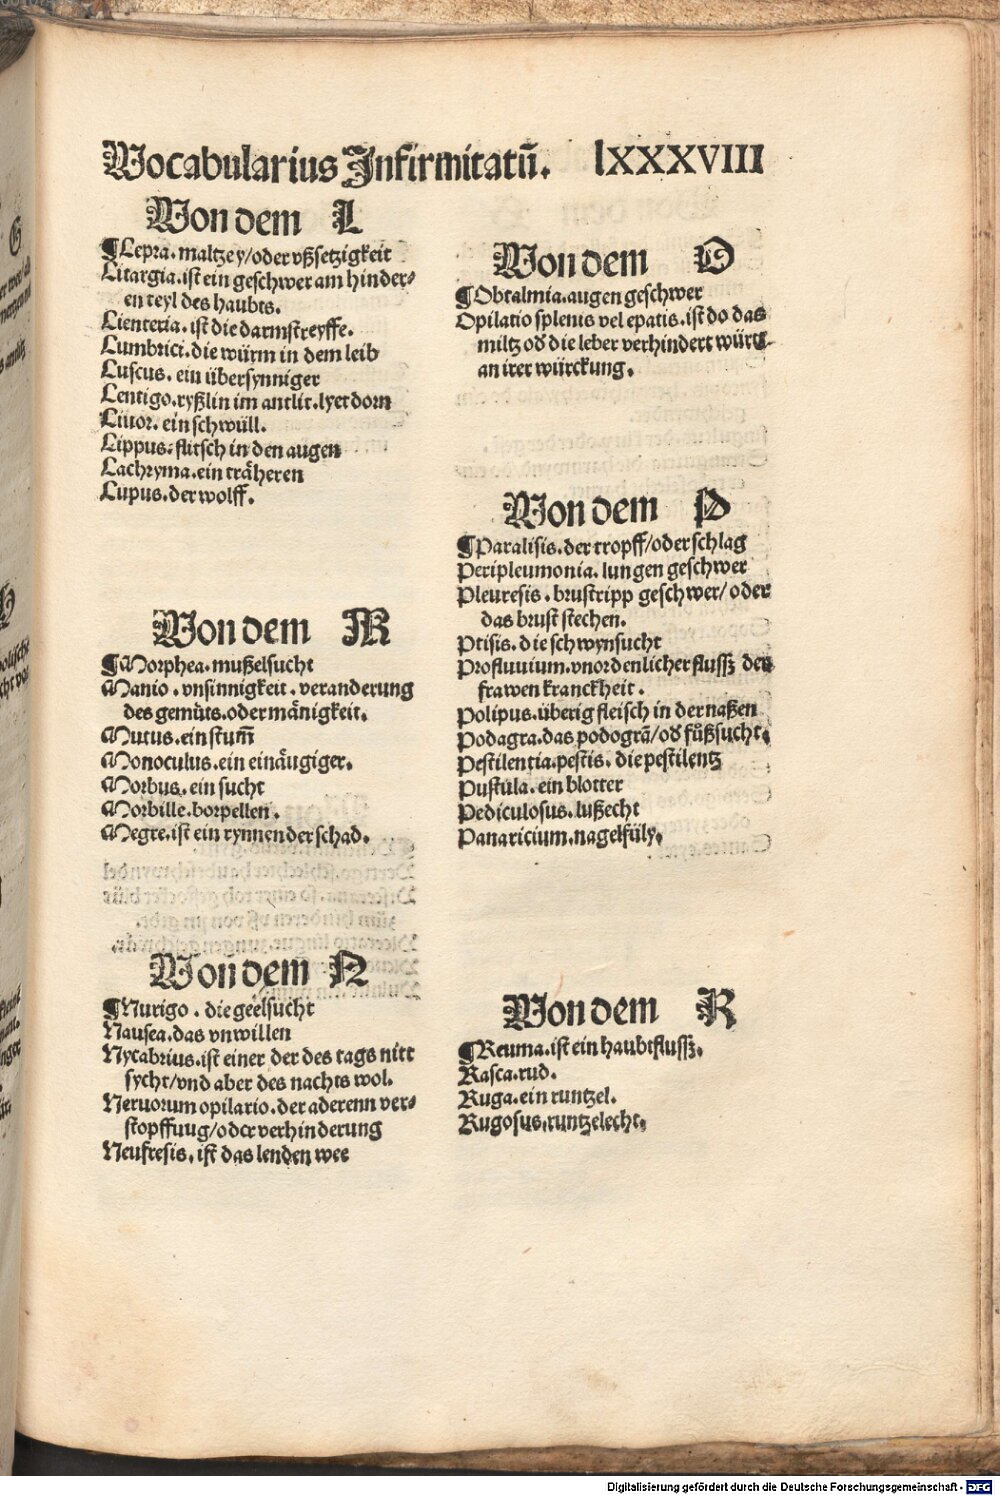 Vocabularius Infirmitatū. lXXXVIII
Von dem L
¶Lepra. maltzey/oder vßsetzigkeit
Litargia. ist ein geschwer am hinder⸗
en teyl des haubts.
Lienteria. ist die darmstreyffe.
Lumbrici. die würm in dem leib
Luscus. ein übersynniger
Lentigo. ryßlin im antlit. lyerdorn
Liuor. ein schwüll.
Lippus: flitsch in den augen
Lachryma. ein träheren
Lupus. der wolff.
Von dem M
¶Morphea. mußelsucht
Manio. vnsinnigkeit. veranderung
des gemüts. oder mänigkeit.
Mutus. ein stum̄
Monoculus. ein einäugiger.
Morbus. ein sucht
Morbille. borpellen.
Megre. ist ein rynnender schad.
Von dem N
¶Nurigo. die geelsucht
Nausea. das vnwillen
Nycabrius. ist einer der des tags nitt
sycht/vnd aber des nachts wol.
Neruorum opilatio. der aderenn ver⸗
stopffuug/oder verhinderung
Neufresis. ist das lenden wee
Von dem O
¶Obtalmia. augen geschwer
Opilatio splenis vel epatis. ist do das
miltz od die leber verhindert würt
an irer würckung.
Von dem P
¶Paralisis. der tropff/oder schlag
Peripleumonia. lungen geschwer
Pleuresis. brustripp geschwer/oder
das brust stechen.
Ptisis. die schwynsucht
Profluuium. vnordenlicher flussz der
frawen kranckheit.
Polipus. überig fleisch in der naßen
Podagra. das podogrā/od fůßsucht.
Pestilentia. pestis. die pestilentz
Pustula. ein blotter
Pediculosus. lußecht
Panaricium. nagelfüly.
Von dem R
¶Reuma. ist ein haubtflussz.
Rasca. rud.
Ruga. ein runtzel.
Rugosus. runtzelecht.
Digitalisierung gefördert durch die Deutsche Forschungsgemeinschaft - DFG